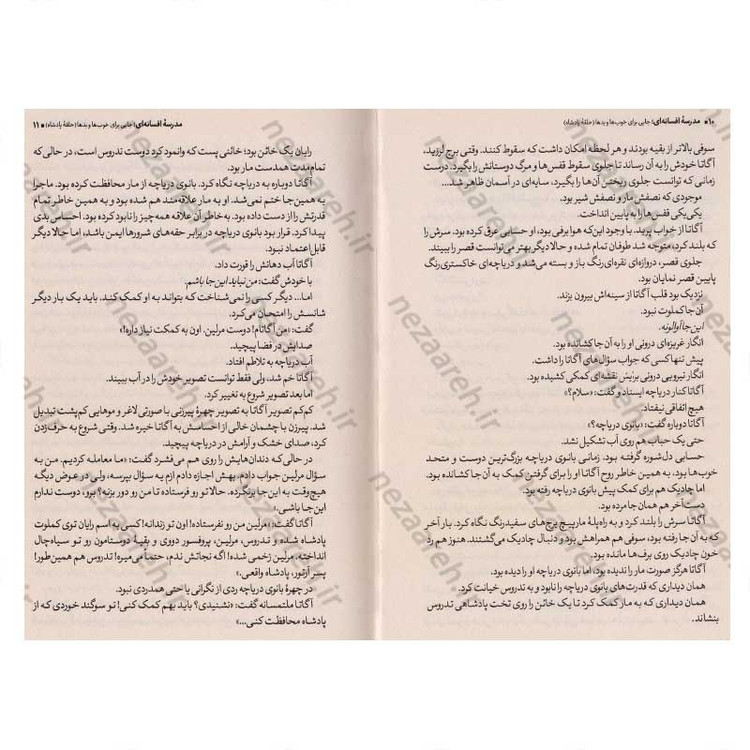 ۱۰ ■ مدرسهٔ افسانه‌ای: جایی برای خوب‌ها و بدها (حلقهٔ پادشاه)
سوفی بالاتر از بقیه بودند و هر لحظه امکان داشت که سقوط کنند. وقتی برج لرزید،
آگاتا خودش را به آن رساند تا جلوی سقوط قفس‌ها و مرگ دوستانش را بگیرد. درست
زمانی که توانست جلوی ریختن آن‌ها را بگیرد، سایه‌ای در آسمان ظاهر شد...
موجودی که نصفش مار و نصفش شیر بود.
یکی‌یکی قفس‌ها را به پایین انداخت.
آگاتا از خواب پرید. با وجود این‌که هوا برفی بود، او حسابی عرق کرده بود. سرش را
که بلند کرد، متوجه شد طوفان تمام شده و حالا دیگر بهتر می‌توانست قصر را ببیند.
جلوی قصر، دروازه‌ای نقره‌ای‌رنگ باز و بسته می‌شد و دریاچه‌ای خاکستری‌رنگ
پایین قصر نمایان بود.
نزدیک بود قلب آگاتا از سینه‌اش بیرون بزند.
آن‌جا کملوت نبود.
این‌جا آوالونه.
انگار غریزه‌ای درونی او را به آن‌جا کشانده بود.
پیش تنها کسی که جواب سؤال‌های آگاتا را داشت.
انگار نیرویی درونی برایش نقشه‌ای کمکی کشیده بود.
آگاتا کنار دریاچه ایستاد و گفت: «سلام؟»
هیچ اتفاقی نیفتاد.
آگاتا دوباره گفت: «بانوی دریاچه؟»
حتی یک حباب هم روی آب تشکیل نشد.
حسابی دل‌شوره گرفته بود. زمانی بانوی دریاچه بزرگ‌ترین دوست و متحد
خوب‌ها بود، به همین خاطر روح آگاتا او را برای گرفتن کمک به آن‌جا کشانده بود.
اما چادیک هم برای کمک پیش بانوی دریاچه رفته بود.
دست آخر هم همان جا مرده بود.
آگاتا سرش را بلند کرد و به راه‌پلهٔ مارپیچ برج‌های سفیدرنگ نگاه کرد. بار آخر
که به آن جا رفته بود، سوفی هم همراهش بود و دنبال چادیک می‌گشتند. هنوز هم رد
خون چادیک روی برف‌ها مانده بود.
آگاتا هرگز صورت مار را ندیده بود، اما بانوی دریاچه او را دیده بود.
همان دیداری که قدرت‌های بانوی دریاچه را نابود و به تدروس خیانت کرد.
همان دیداری که به مار کمک کرد تا یک خائن را روی تخت پادشاهی تدروس
بنشاند.
مدرسهٔ افسانه‌ای: (جایی برای خوب‌ها و بدها (حلقهٔ پادشاه) ■ ۱۱
رایان یک خائن بود؛ خائنی پست که وانمود کرد دوست تدروس است، در حالی که
تمام مدت همدست مار بود.
آگاتا دوباره به دریاچه نگاه کرد. بانوی دریاچه از مار محافظت کرده بود. ماجرا
به همین‌جا ختم نمی‌شد. او به مار علاقه‌مند هم شده بود و به همین خاطر تمام
قدرتش را از دست داده بود. به خاطر آن علاقه همه‌چیز را نابود کرده بود. احساس بدی
پیدا کرد. قرار بود بانوی دریاچه در برابر حقه‌های شرورها ایمن باشد، اما حالا دیگر
قابل اعتماد نبود.
آگاتا آب دهانش را قورت داد.
با خودش گفت: من نباید این‌جا باشم.
اما... دیگر کسی را نمی‌شناخت که بتواند به او کمک کند. باید یک بار دیگر
شانسش را امتحان می‌کرد.
گفت: «من آگاتام! دوست مرلین. اون به کمکت نیاز داره!»
صدایش در فضا پیچید.
آب دریاچه به تلاطم افتاد.
آگاتا خم شد، ولی فقط توانست تصویر خودش را در آب ببیند.
اما بعد تصویر شروع به تغییر کرد.
کم‌کم تصویر آگاتا به تصویر چهرهٔ پیرزنی با صورتی لاغر و موهایی کم‌پشت تبدیل
شد. پیرزن با چشمان خالی از احساسش به آگاتا خیره شد. وقتی شروع به حرف‌زدن
کرد، صدای خشک و آرامش در دریاچه پیچید.
در حالی‌که دندان‌هایش را روی هم می‌فشرد گفت: «ما معامله کردیم. من به
سؤال مرلین جواب دادم. بهش اجازه دادم ازم یه سؤال بپرسه، ولی در عوض دیگه
هیچ‌وقت به این‌جا برنگرده. حالا تو رو فرستاده تا من رو دور بزنه؟ برو، دوست ندارم
این‌جا باشی.»
آگاتا گفت: «مرلین من رو نفرستاده! اون تو زندانه! کسی به اسم رایان توی کملوت
پادشاه شده و تدروس، مرلین، پرفسور دووی و بقیهٔ دوستامون رو تو سیاه‌چال
انداخته. مرلین زخمی شده! اگه نجاتش ندم، حتما می‌میره! تدروس هم همین‌طور!
پسر آرتور، پادشاه واقعی.»
در چهرهٔ بانوی دریاچه ردی از نگرانی یا حتی همدردی نبود.
آگاتا ملتمسانه گفت: «نشنیدی؟ باید بهم کمک کنی! تو سوگند خوردی که از
پادشاه محافظت کنی...»
nezaareh.ir